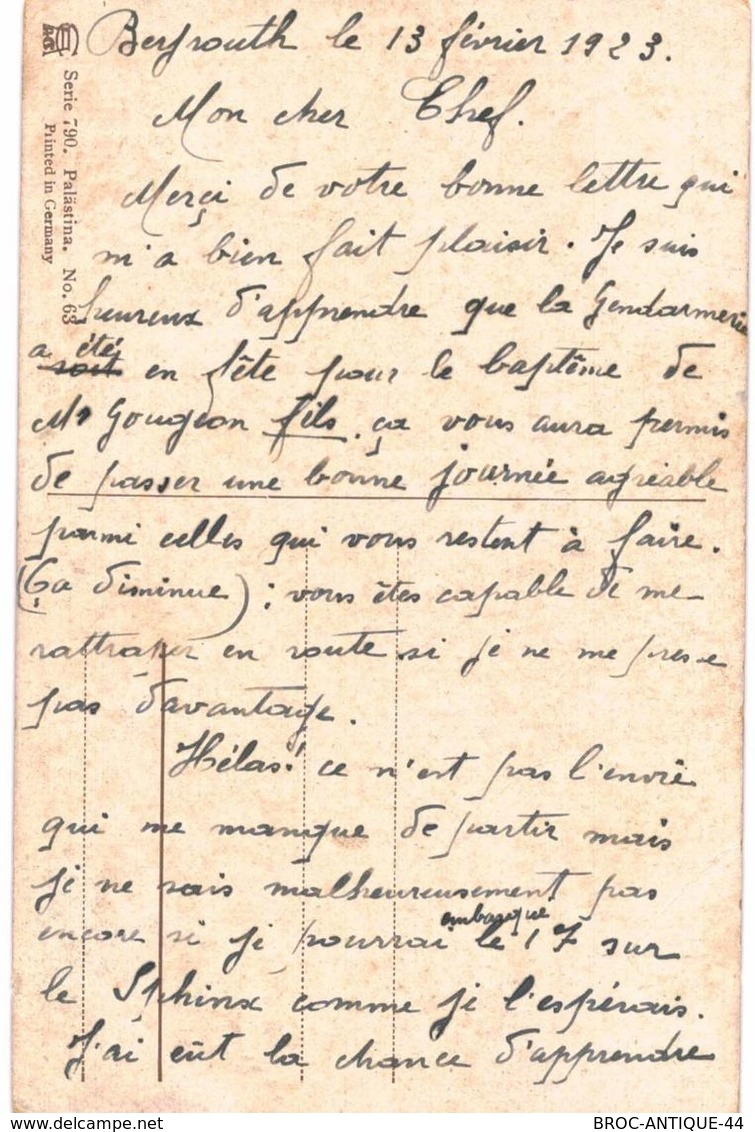 Beyrouth le 13 février 1923.
Mon cher Chef.
Merçi de votre bonne lettre qui
m'a bien fait plaisir. Je suis
heureux d'apprendre que la Gendarmerie
a été soit en fête pour le baptême de
Mr Gougeon fils. ça vous aura permis
de passer une bonne journée agréable
parmi celles qui vous restent à faire.
(Ça diminue) : vous êtes capable de me
rattraper en route si je ne me presse
pas davantage.
Hélas! ce n'est pas l'envie
qui me manque de partir mais
je ne sais malheureusement pas
encore si je pourrai embarque le 17 sur
le Sphinx comme je l'espérais.
J'ai eût la chance d'apprendre
Serie 790. Palästina. No. 63
Printed in Germany
BROC-ANTIQUE-44